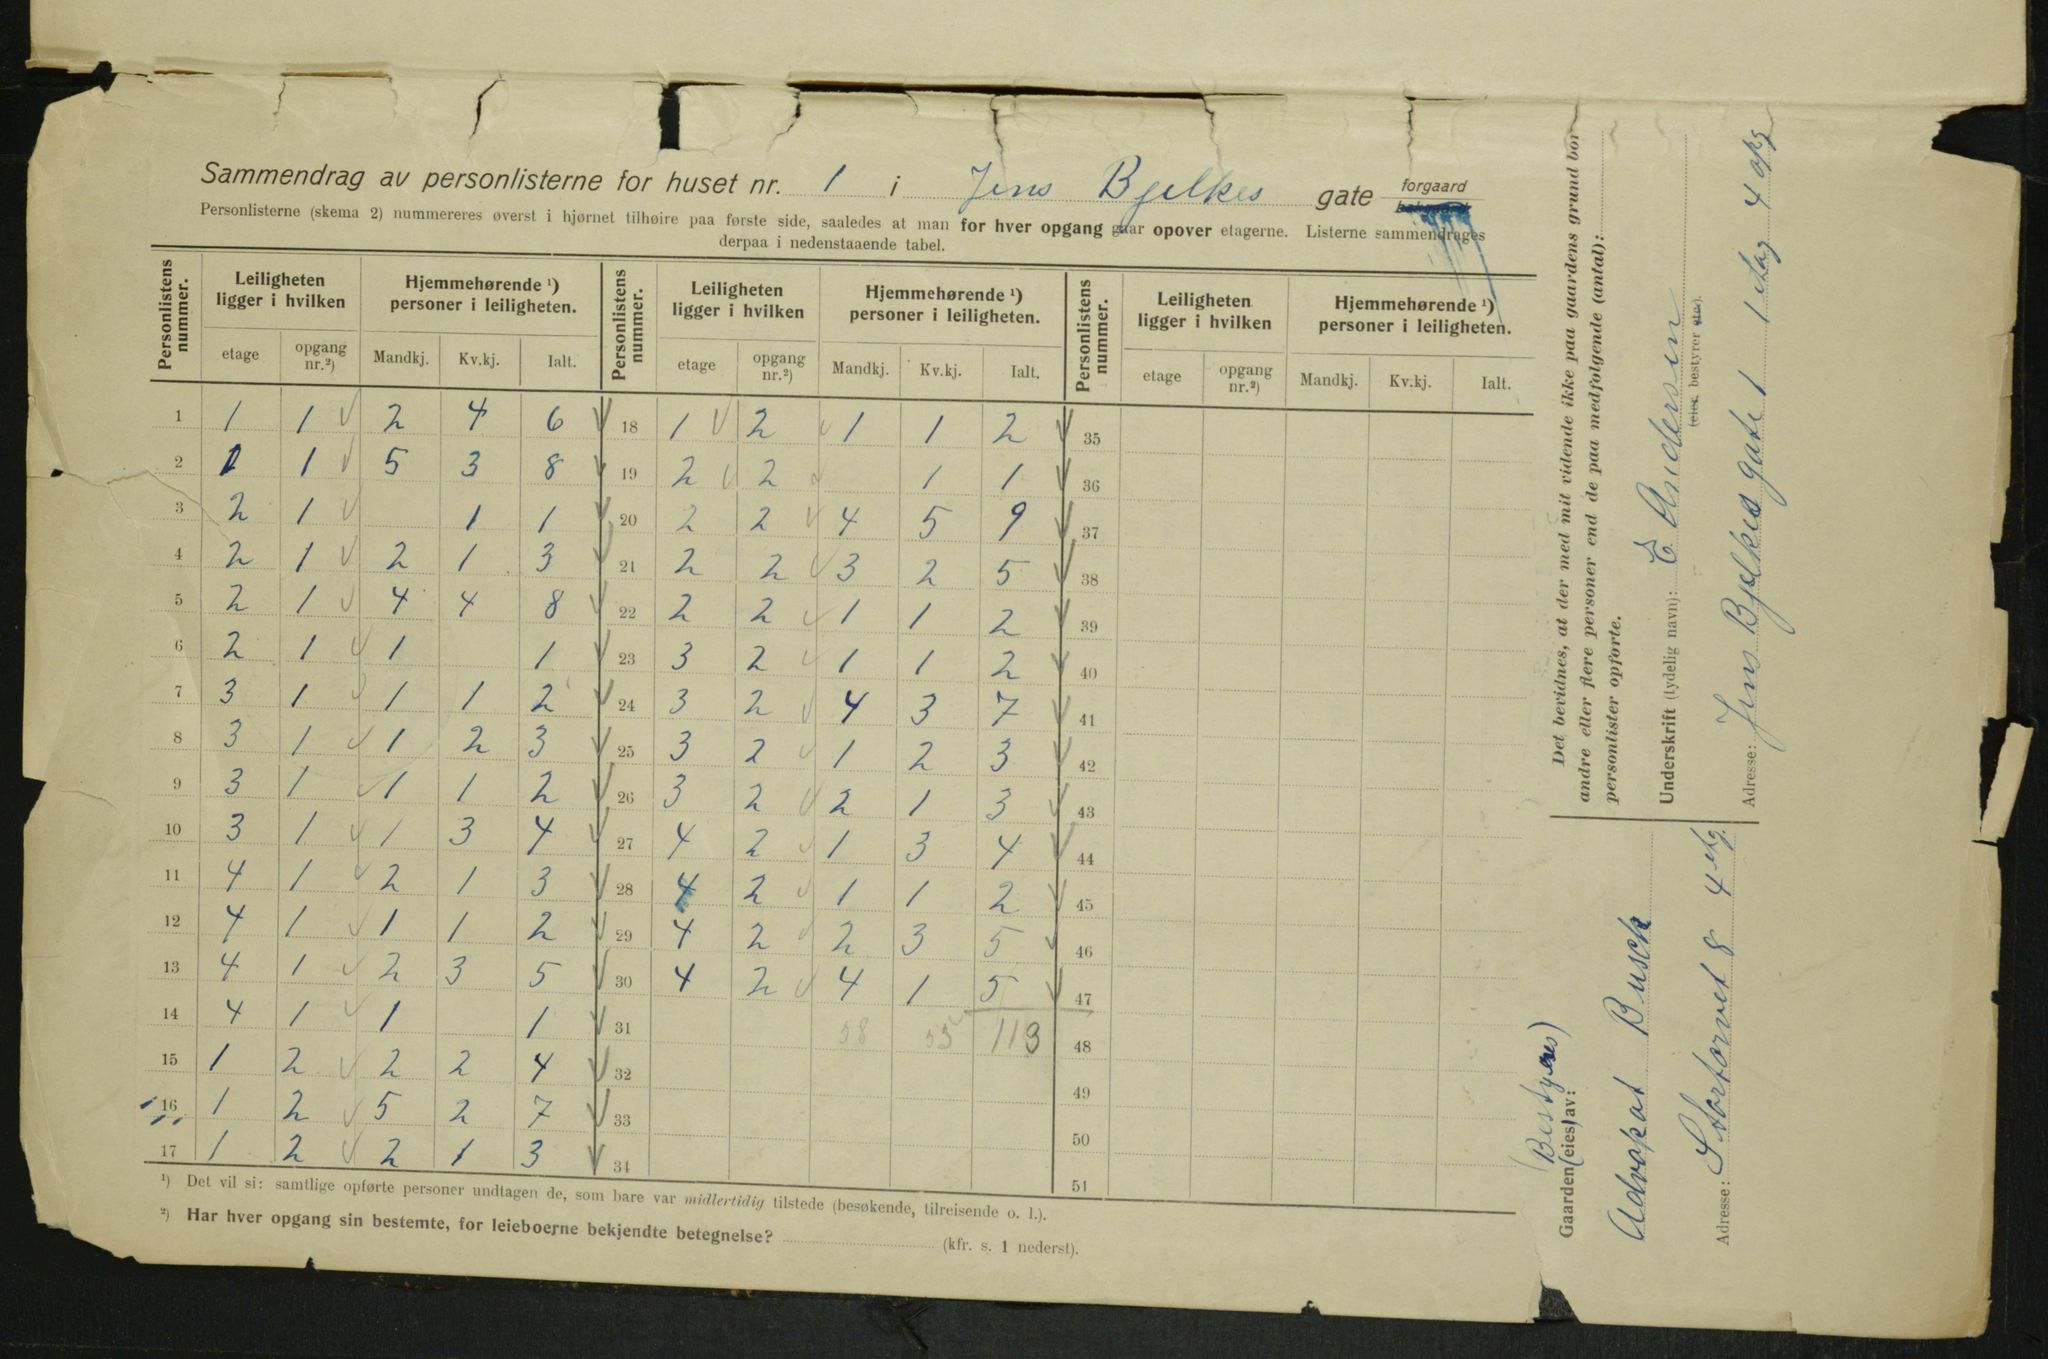 Sammendrag av personlisterne for huset nr. 1 i Jens Bjelkes gate forgaard bakgaard
Personlisterne (skema 2) nummereres øverst i hjørnet tilhøire paa første side, saaledes at man for hver opgang gaar opover etagerne. Listerne sammendrages
derpaa i nedenstaaende tabel.
Personlistens nummer. Leiligheten ligger i hvilken Hjemmehørende ¹) personer i leiligheten. Personlistens nummer. Leiligheten ligger i hvilken Hjemmehørende ¹) personer i leiligheten. Personlistens nummer. Leiligheten ligger i hvilken Hjemmehørende ¹) personer i leiligheten.
etage opgang nr.²) Mandkj. Kv.kj. Ialt. etage opgang nr.²) Mandkj. Kv.kj. Ialt. etage opgang nr.²) Mandkj. Kv.kj. Ialt.
1 1 1 2 4 6 18 1 2 1 1 2 35
2 1 1 5 3 8 19 2 2 1 1 36
3 2 1 1 1 20 2 2 4 5 9 37
4 2 1 2 1 3 21 2 2 3 2 5 38
5 2 1 4 4 8 22 2 2 1 1 2 39
6 2 1 1 1 23 3 2 1 1 2 40
7 3 1 1 1 2 24 3 2 4 3 7 41
8 3 1 1 2 3 25 3 2 1 2 3 42
9 3 1 1 1 2 26 3 2 2 1 3 43
10 3 1 1 3 4 27 4 2 1 3 4 44
11 4 1 2 1 3 28 4 2 1 1 2 45
12 4 1 1 1 2 29 4 2 2 3 5 46
13 4 1 2 3 5 30 4 2 4 1 5 47
14 4 1 1 1 31 58 55 113 48
15 1 2 2 2 4 32 49
16 1 2 5 2 7 33 50
17 1 2 2 1 3 34 51
¹) Det vil si: samtlige opførte personer undtagen de, som bare var midlertidig tilstede (besøkende, tilreisende o. l.).
²) Har hver opgang sin bestemte, for leieboerne bekjendte betegnelse? (kfr. s. 1 nederst).
Det bevidnes, at der med mit vidende ikke paa gaardens grund bor
andre eller flere personer end de paa medfølgende (antal):
personlister opførte.
Underskrift (tydelig navn): E Andersen
(eier, bestyrer etc.)
Adresse: Jens Bjelkes gate 1 1 etag 4 opg
(Bestyres)
Gaarden (eies) av:
Advokat Busch
Adresse: Stortorvet 8 4 etg.